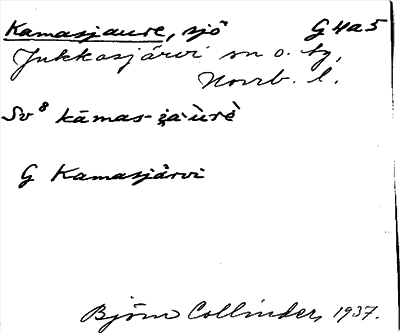 Kamasjaure, sjö G 4a5
Jukkasjärvi sn o. tg,
Norrb. l.
Sv⁸ kāmas-ja̬ùrè
G Kamasjärvi
Björn Collinder, 1937.